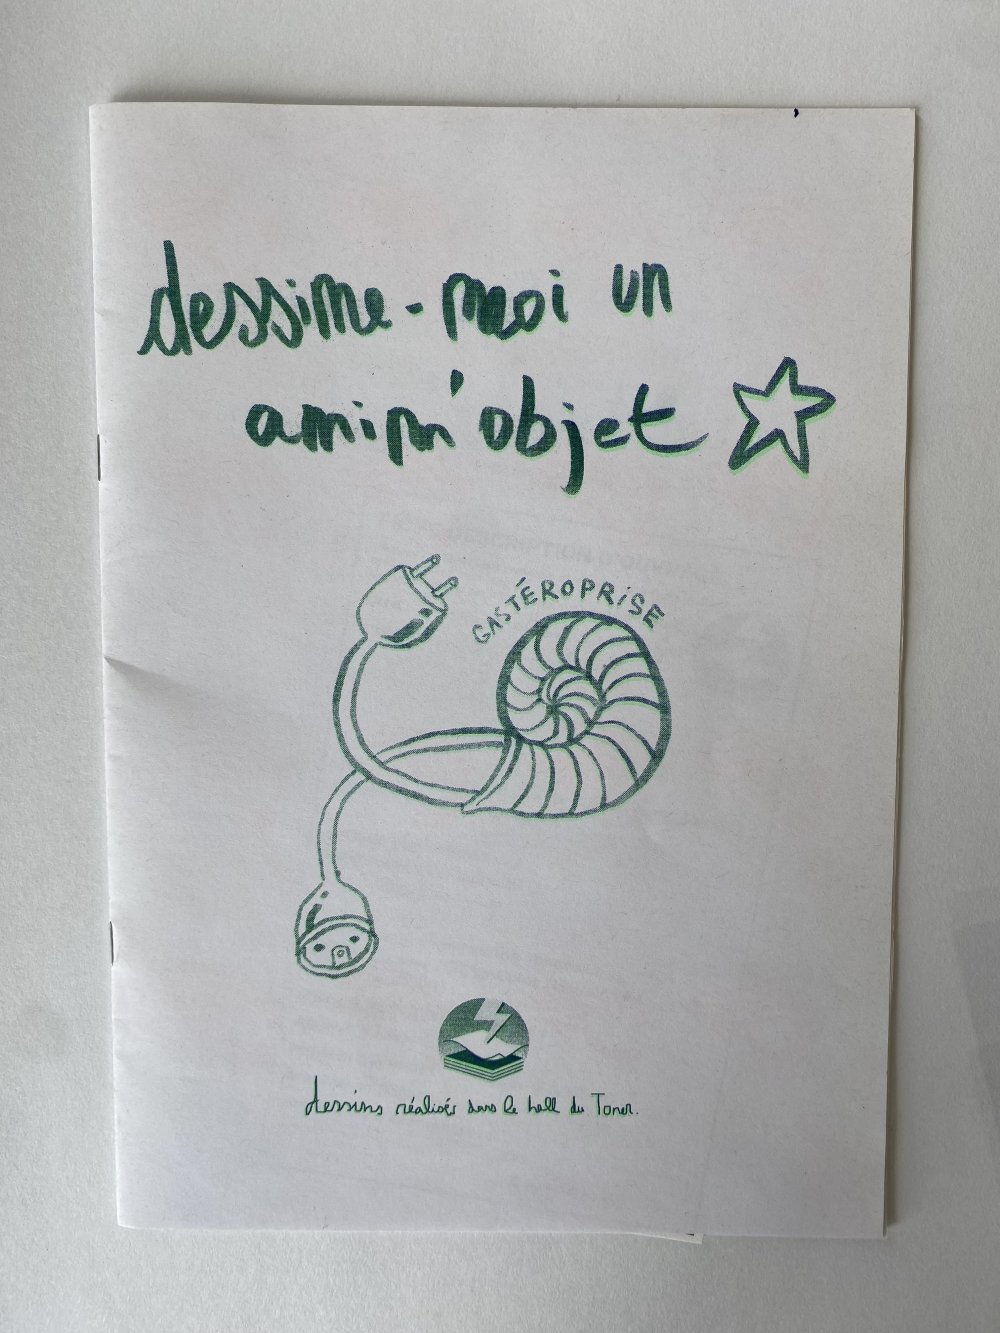 dessine-moi un
anim'objet
GASTÉROPRISE
dessins réalisés dans le hall du Toner.